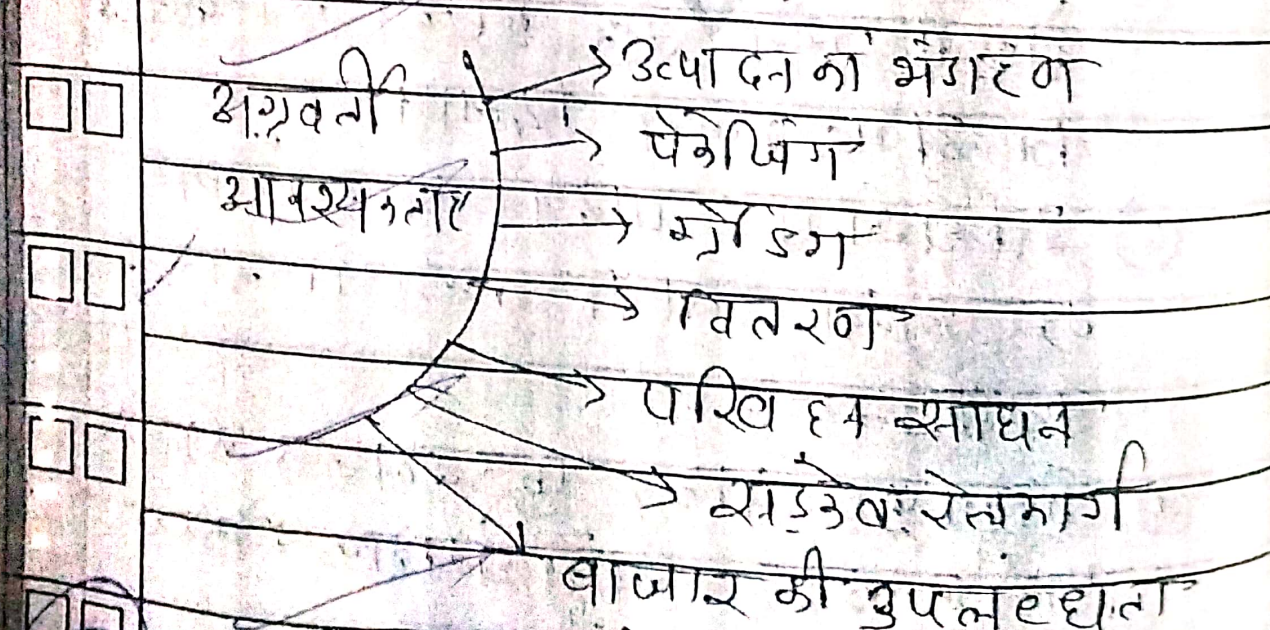 अग्रवर्ती
आवश्यकताएं
उत्पादन का भंडारण
पेकेजिंग
ग्रेडिंग
वितरण
परिवहन साधन
सड़क व रेलमार्ग
बाजार की उपलब्धता